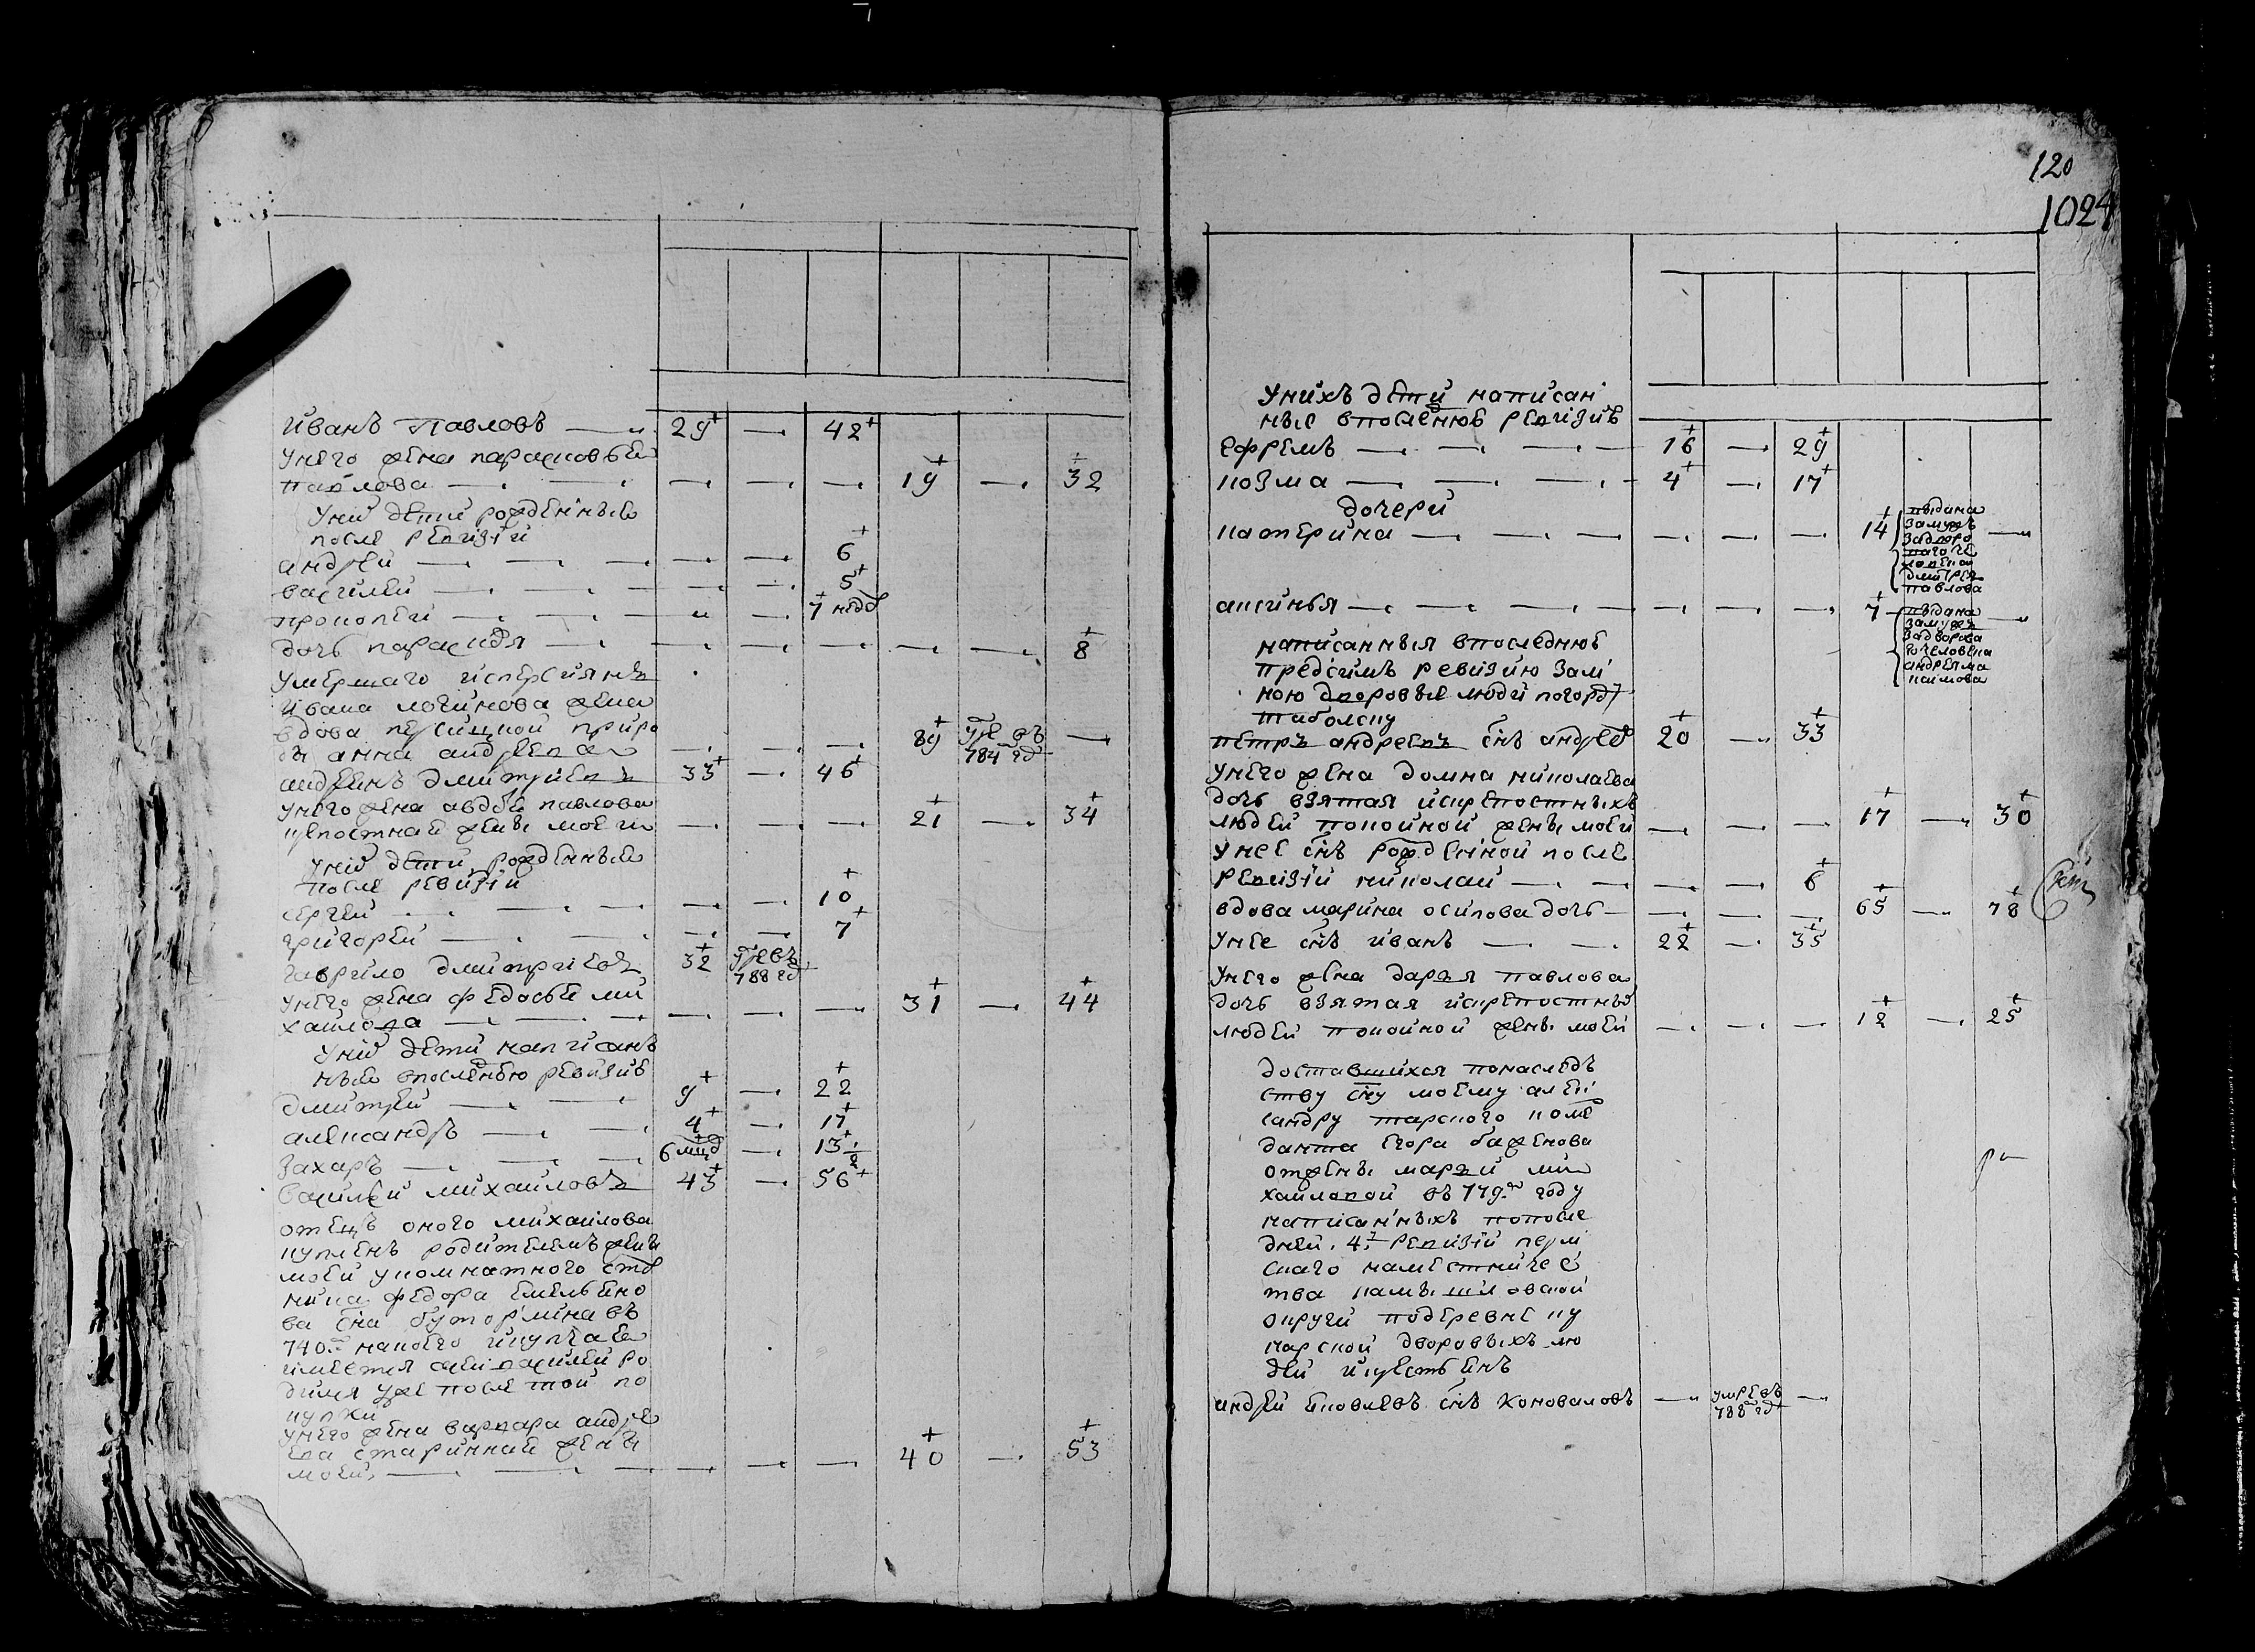 120
1024
иванъ Павловъ — 29 — 42
унего жена парасковья
павлова — — — — — 19 — 32
униⷯ дети рожденныѣ
после ревизіи
андрей — — — — — 6
василей — — — — — 5
прокопей — — — — — 7 недⷧ
дочь парасковя — — — — — — 8
умершаго исперсиянъ
ивана логинова жена
вдова персицкой приро
ды анна андреева — — — 89 умре въ 784 гоⷣ —
андреянъ дмитриевъ 33 — 46
унего жена авдотья павлова
крепостная жены моей — — — 21 — 34
униⷯ дети рожденныѣ
после ревизіи
сергей — — — — — 10
григорей — — — — 7
гаврило дмитриевъ 32 умре въ 788 гоⷣ
унего жена федосья ми
хаилова — — — — — — 31 — 44
униⷯ дети написанъ
ные впоследнюю ревизию
дмитрей — — 9 — 22
александръ — — 4 — 17
захаръ — — — 6 меⷭ — 13 1/2
василей михаиловъ 43 — 56
отецъ оного михаилова
купленъ родителемъ жены
моей
нина федора емельяно
ва сна бутормина въ
740м
имеется сей василей ро
дился уже после той по
купки
унего жена варвара андре
ева старинная жены
моей — — — — — — 40 — 53
унихъ дети написан
ные впоследнюю ревизию
ефремъ — — — — 16 — 29
козма — — — — 4 — 17
дочери
катерина — — — — — — 14 выдана
замужъ
задворо
ваго че
ловека
дмитрея
павлова —
аксинья — — — — — — — 7 выдана
замужъ
задворова
го человека
андреяна
наимова —
написанныя впоследнюю
предсимъ ревизию зам
ною дворовые люди погороⷣ
тобольску
петръ андреевъ снъ андреⷡ 20 — 33
унего жена домна николаева
дочь взятая искрепостныхъ
людей покойной жены моей — — — 17 — 30
унее снъ рожденной после
ревизіи николай — — — — 6
вдова марина осипова дочь — — — — 65 — 78
унее снъ иванъ — — 22 — 35
унего жена дарья павлова
дочь взятая искрепостныⷯ
людей покойной жены моей — — — 12 — 25
доставшихся понаследъ
ству сну моему алек
сандру тарского коме
данта егора баженова
отжены марьи ми
хаиловой въ 779м году
написанныхъ попосле
дней 4й ревизіи перм
скаго наместничес
тва камышловской
округи подеревне ку
нарской дворовыхъ лю
дей икрестьянъ
андрей яковлевъ снъ коноваловъ — умре въ 788 гоⷣ —